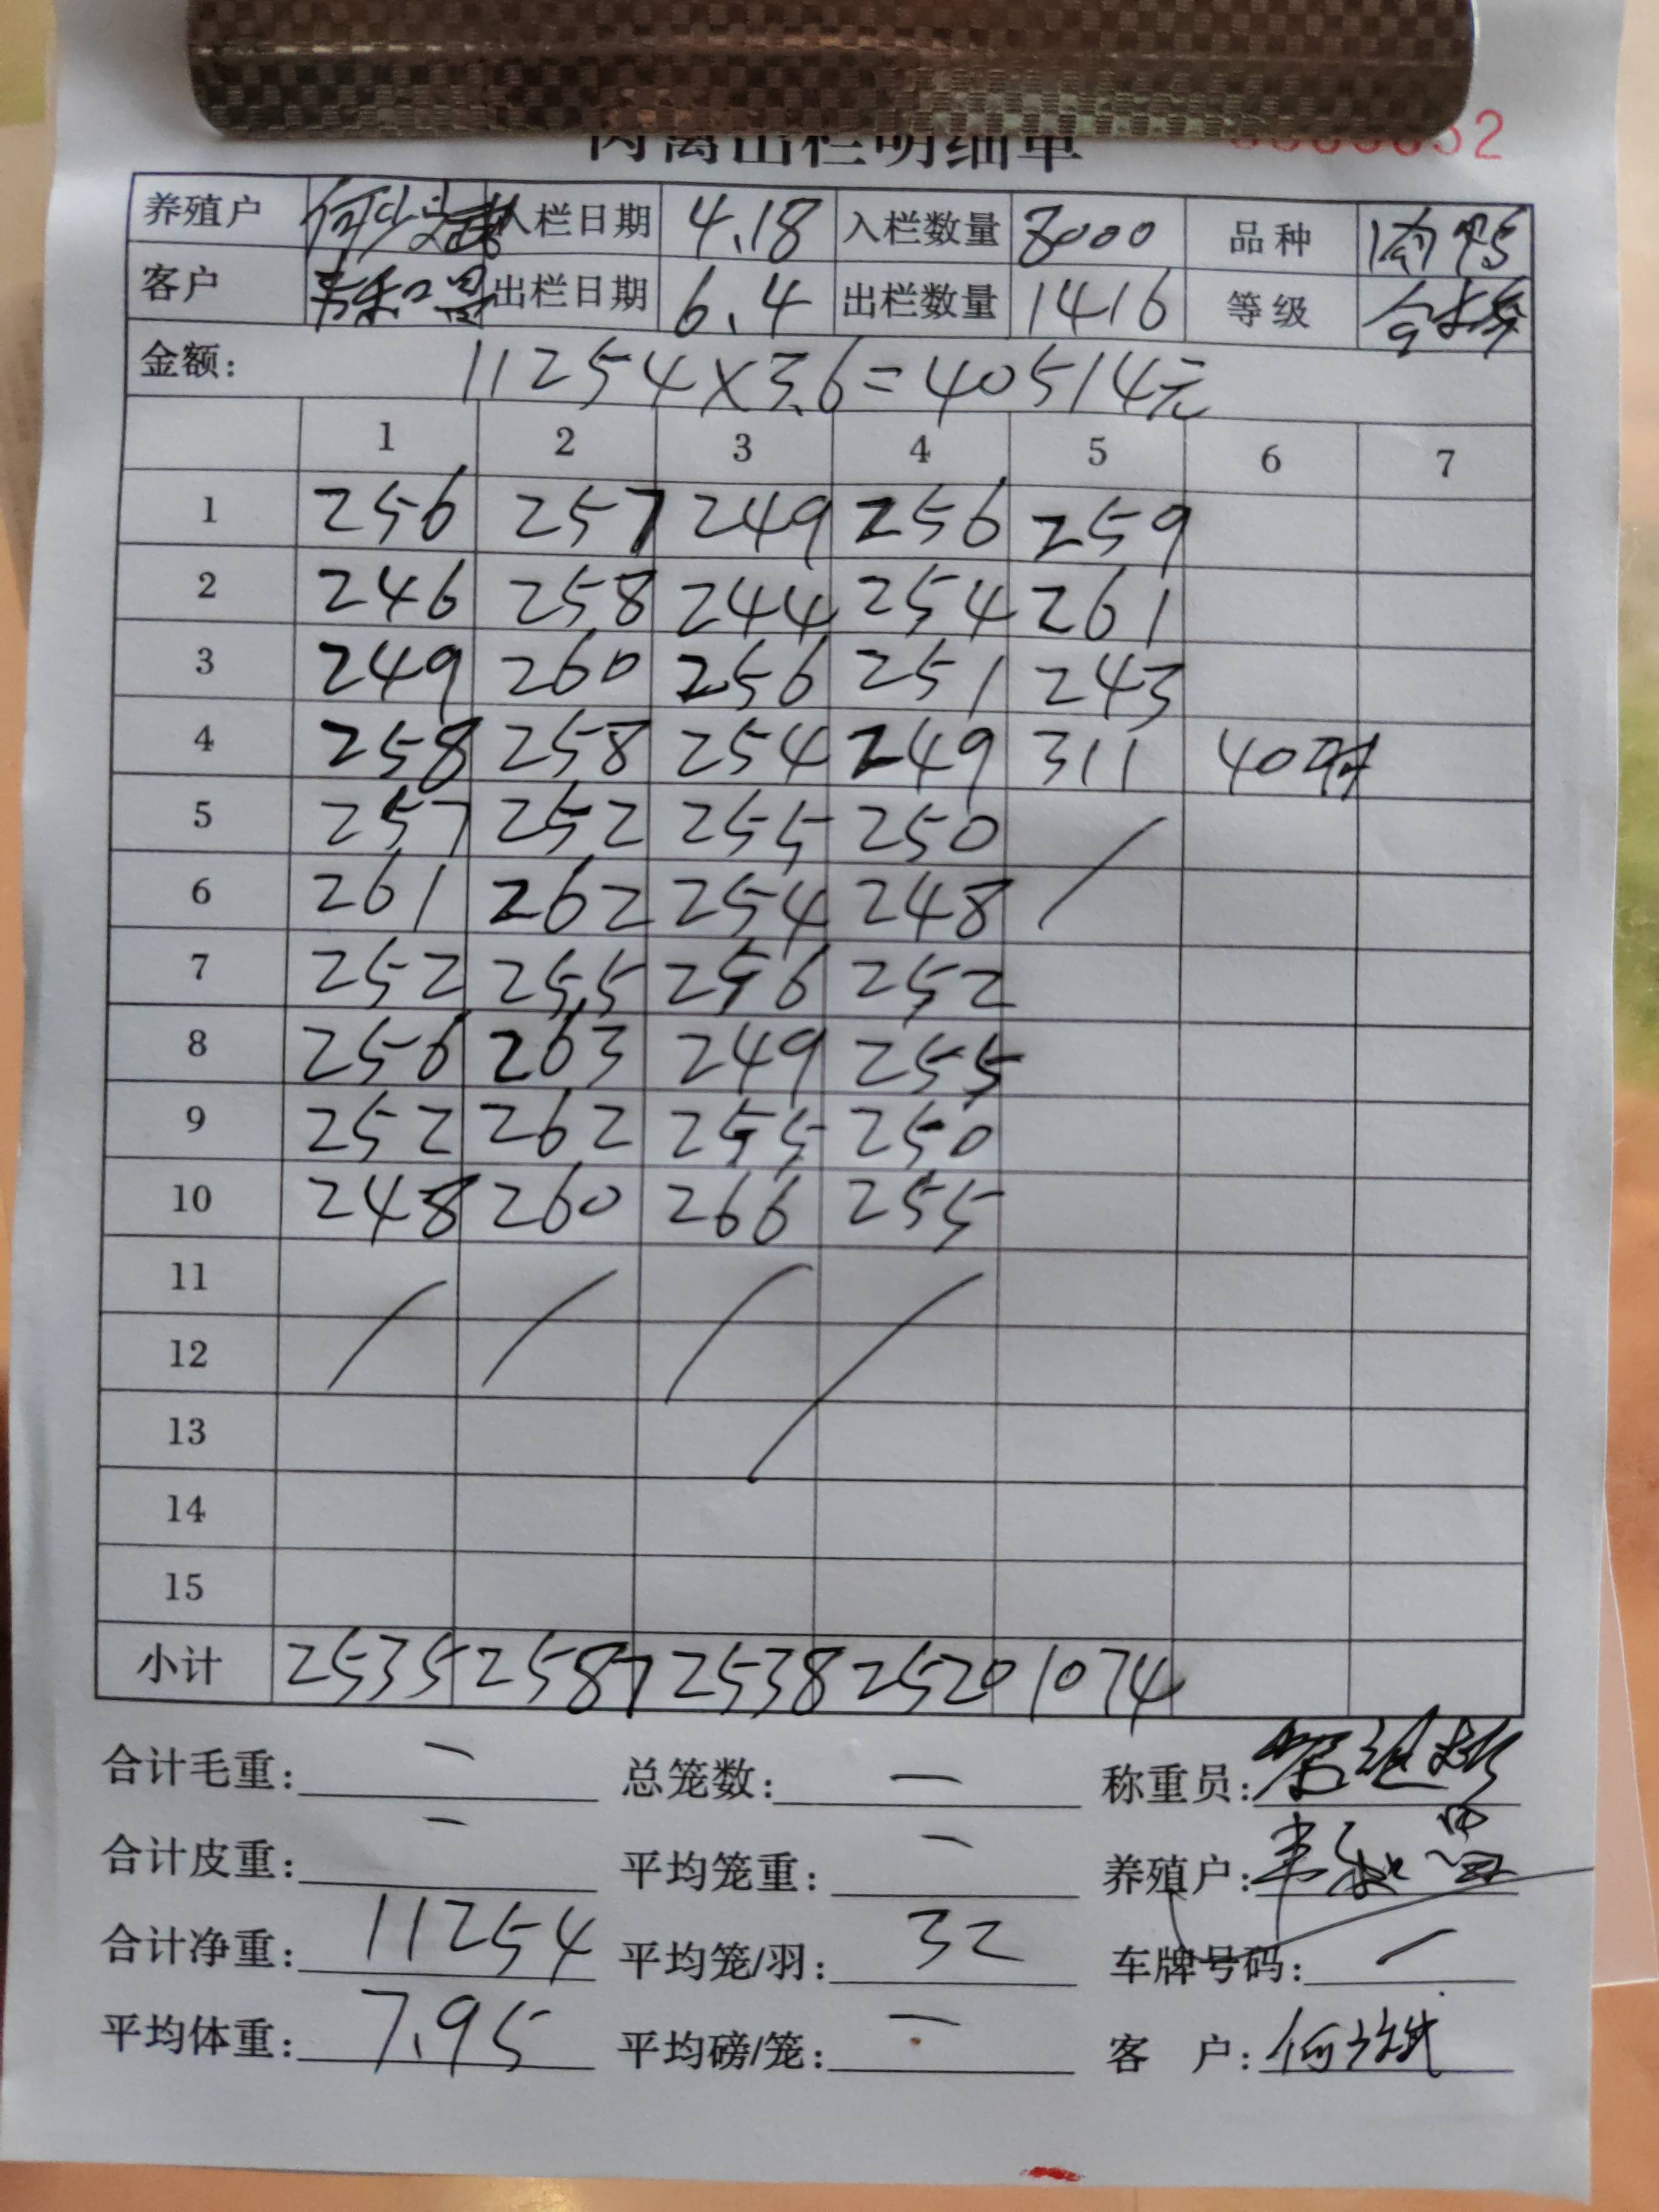 肉禽出栏明细单 32
养殖户 入栏日期 4.18 入栏数量 8000 品种 肉鸭
客户 出栏日期 6.4 出栏数量 1416 等级 合格
金额: 11254×3.6=40514元
1 2 3 4 5 6 7
1 256 257 249 256 259
2 246 258 244 254 261
3 249 260 256 251 243
4 258 258 254 249 311 40只
5 257 252 255 250
6 261 262 254 248
7 252 255 256 252
8 256 263 249 255
9 252 262 255 250
10 248 260 266 255
11
12
13
14
15
小计 2535 2587 2538 2520 1074
合计毛重: — 总笼数: — 称重员:
合计皮重: — 平均笼重: — 养殖户:
合计净重: 11254 平均笼/羽: 32 车牌号码: —
平均体重: 7.95 平均磅/笼: — 客 户: